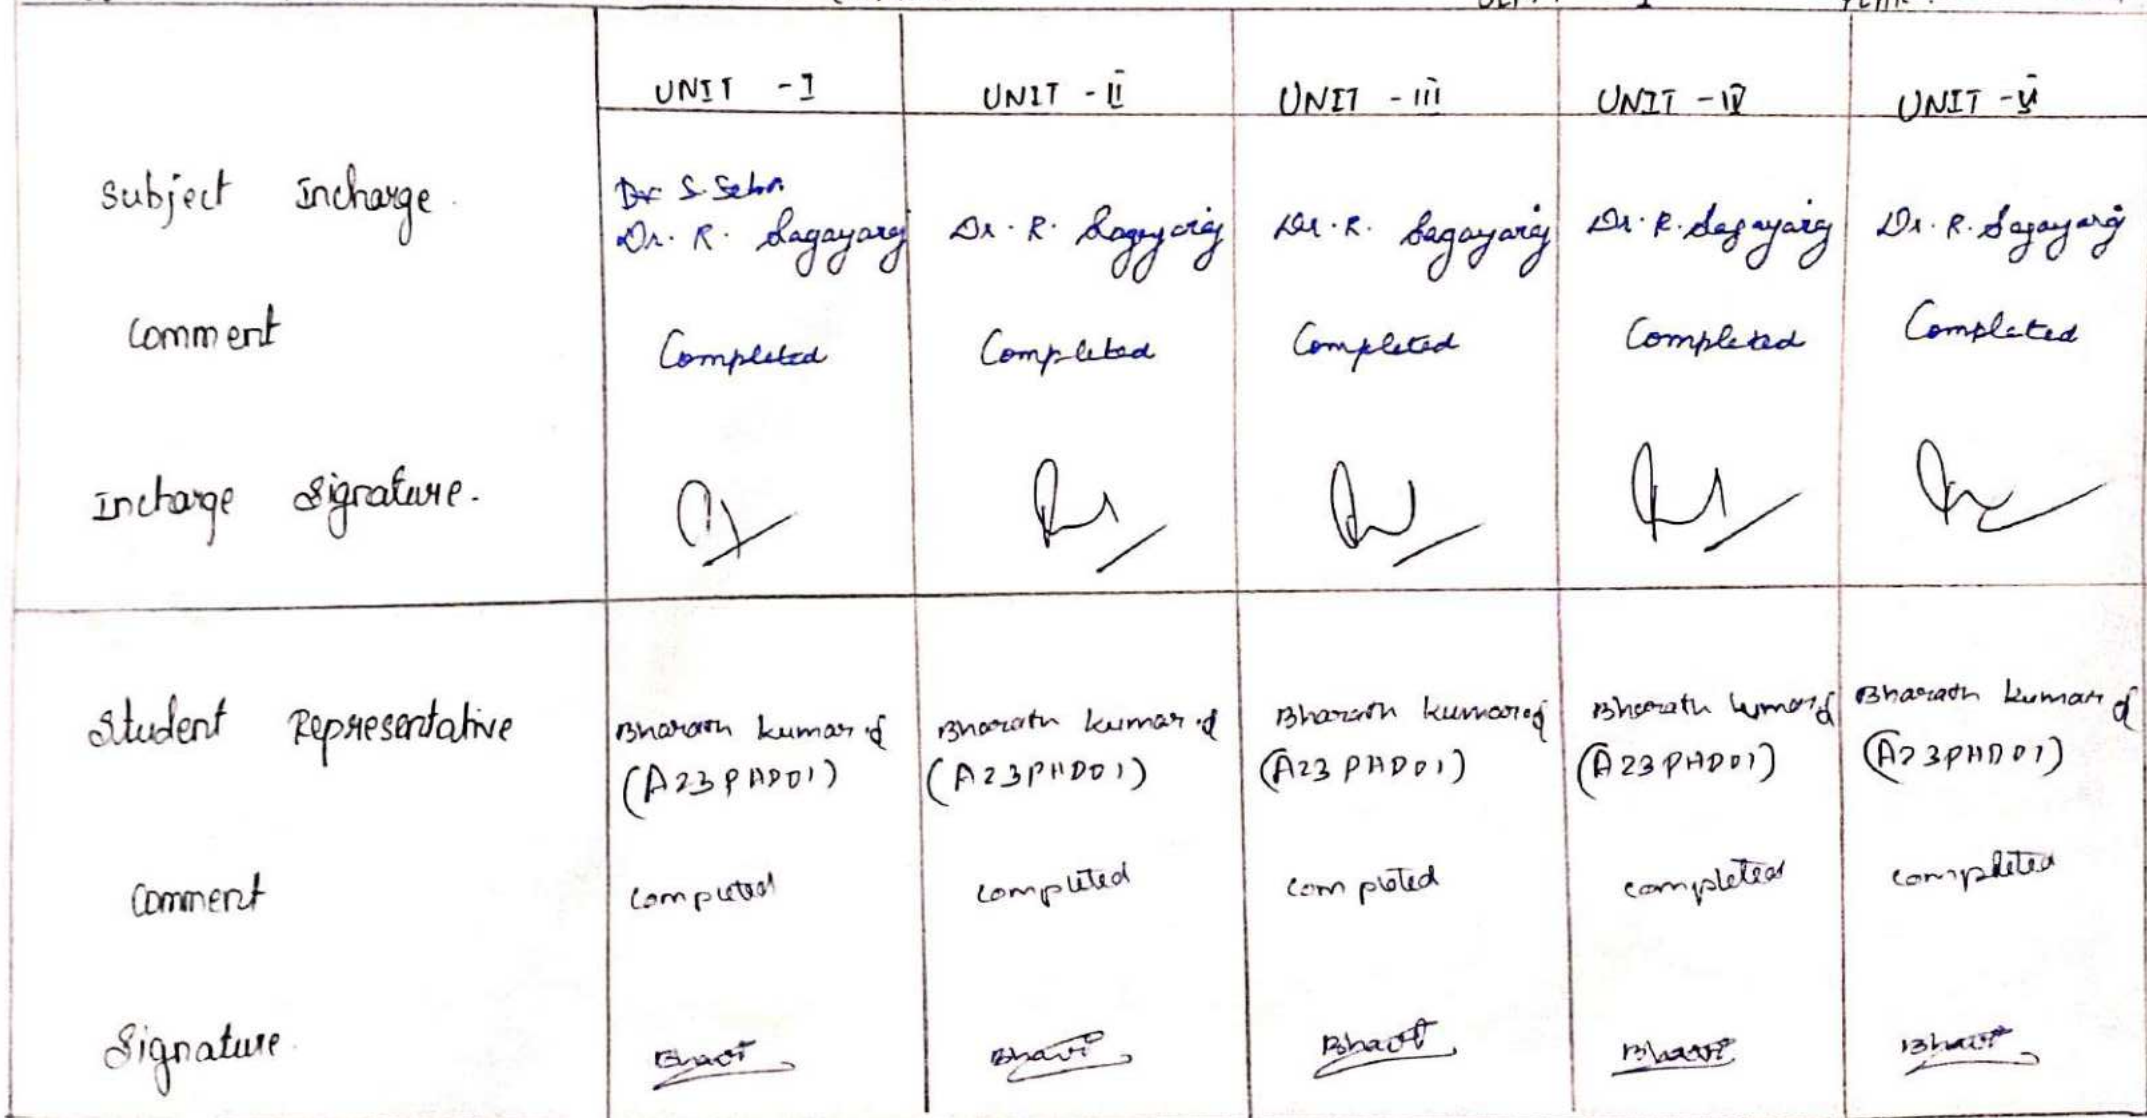 UNIT - I UNIT - II UNIT - III UNIT - IV UNIT - V
Subject Incharge.
Dr S. 
Dr. R. Sagayaraj Dr. R. Sagayaraj Dr. R. Sagayaraj Dr. R. Sagayaraj Dr. R. Sagayaraj
Comment Completed Completed Completed Completed Completed
Incharge Signature.
Student Representative Bharath kumar Bharath kumar Bharath kumar Bharath kumar Bharath kumar
(A23PHD01) (A23PHD01) (A23PHD01) (A23PHD01) (A23PHD01)
Comment completed completed completed completed completed
Signature.